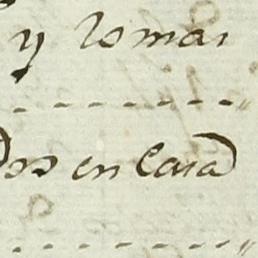 y lomas
os en Casa